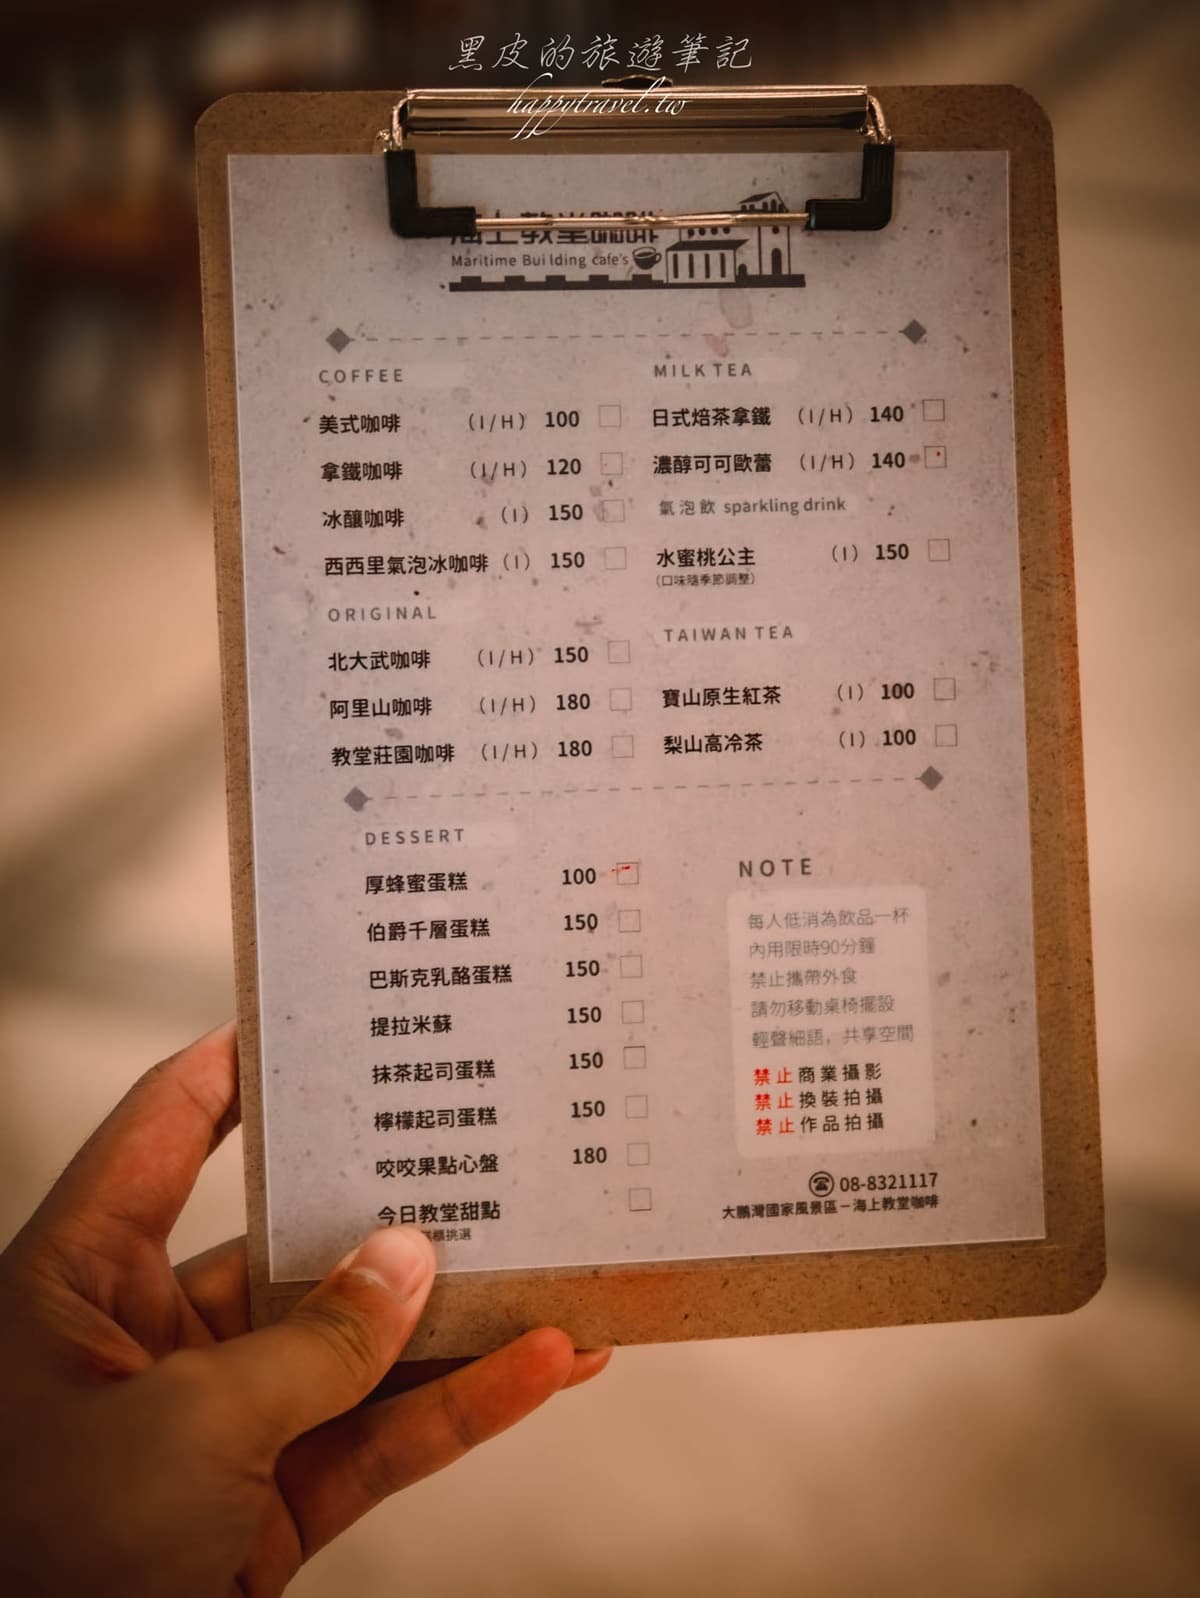 黑皮的旅遊筆記
happytravel.tw
海上教堂咖啡
Maritime Building cafe's
COFFEE
美式咖啡 (I/H) 100
拿鐵咖啡 (I/H) 120
冰釀咖啡 (I) 150
西西里氣泡冰咖啡 (I) 150
ORIGINAL
北大武咖啡 (I/H) 150
阿里山咖啡 (I/H) 180
教堂莊園咖啡 (I/H) 180
MILK TEA
日式焙茶拿鐵 (I/H) 140
濃醇可可歐蕾 (I/H) 140
氣泡飲 sparkling drink
水蜜桃公主 (I) 150
(口味隨季節調整)
TAIWAN TEA
寶山原生紅茶 (I) 100
梨山高冷茶 (I) 100
DESSERT
厚蜂蜜蛋糕 100
伯爵千層蛋糕 150
巴斯克乳酪蛋糕 150
提拉米蘇 150
抹茶起司蛋糕 150
檸檬起司蛋糕 150
咬咬果點心盤 180
今日教堂甜點
櫃挑選
NOTE
每人低消為飲品一杯
內用限時90分鐘
禁止攜帶外食
請勿移動桌椅擺設
輕聲細語，共享空間
禁止商業攝影
禁止換裝拍攝
禁止作品拍攝
08-8321117
大鵬灣國家風景區－海上教堂咖啡